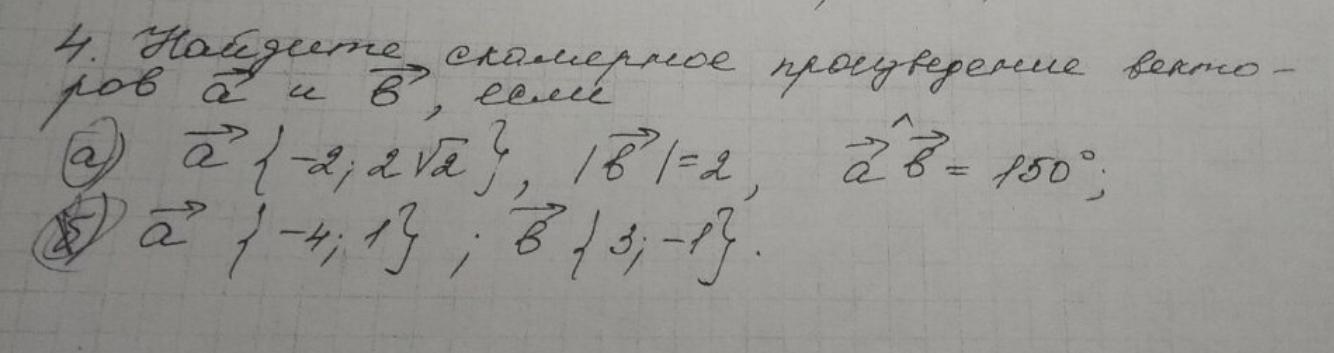 4. Найдите скалярное произведение векто-
ров a⃗ и b⃗, если
а) a⃗ {-2; 2√2}, |b⃗|=2, a⃗^b⃗ = 150°;
б) a⃗ {-4; 1}; b⃗ {3; -1}.